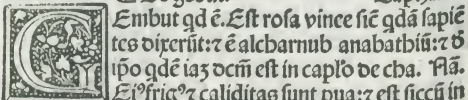 Embut qd ē. Est rosa vince siē qdā sapiē
tes dixerūt: ⁊ ē alcharnub anabathiū: ⁊ đ
ip̄o qdē iaʒ dcm̄ est in cap̄lo de cha. Nā.
Ei⁹ frig⁹ ⁊ caliditas sunt pua: ⁊ est siccū in